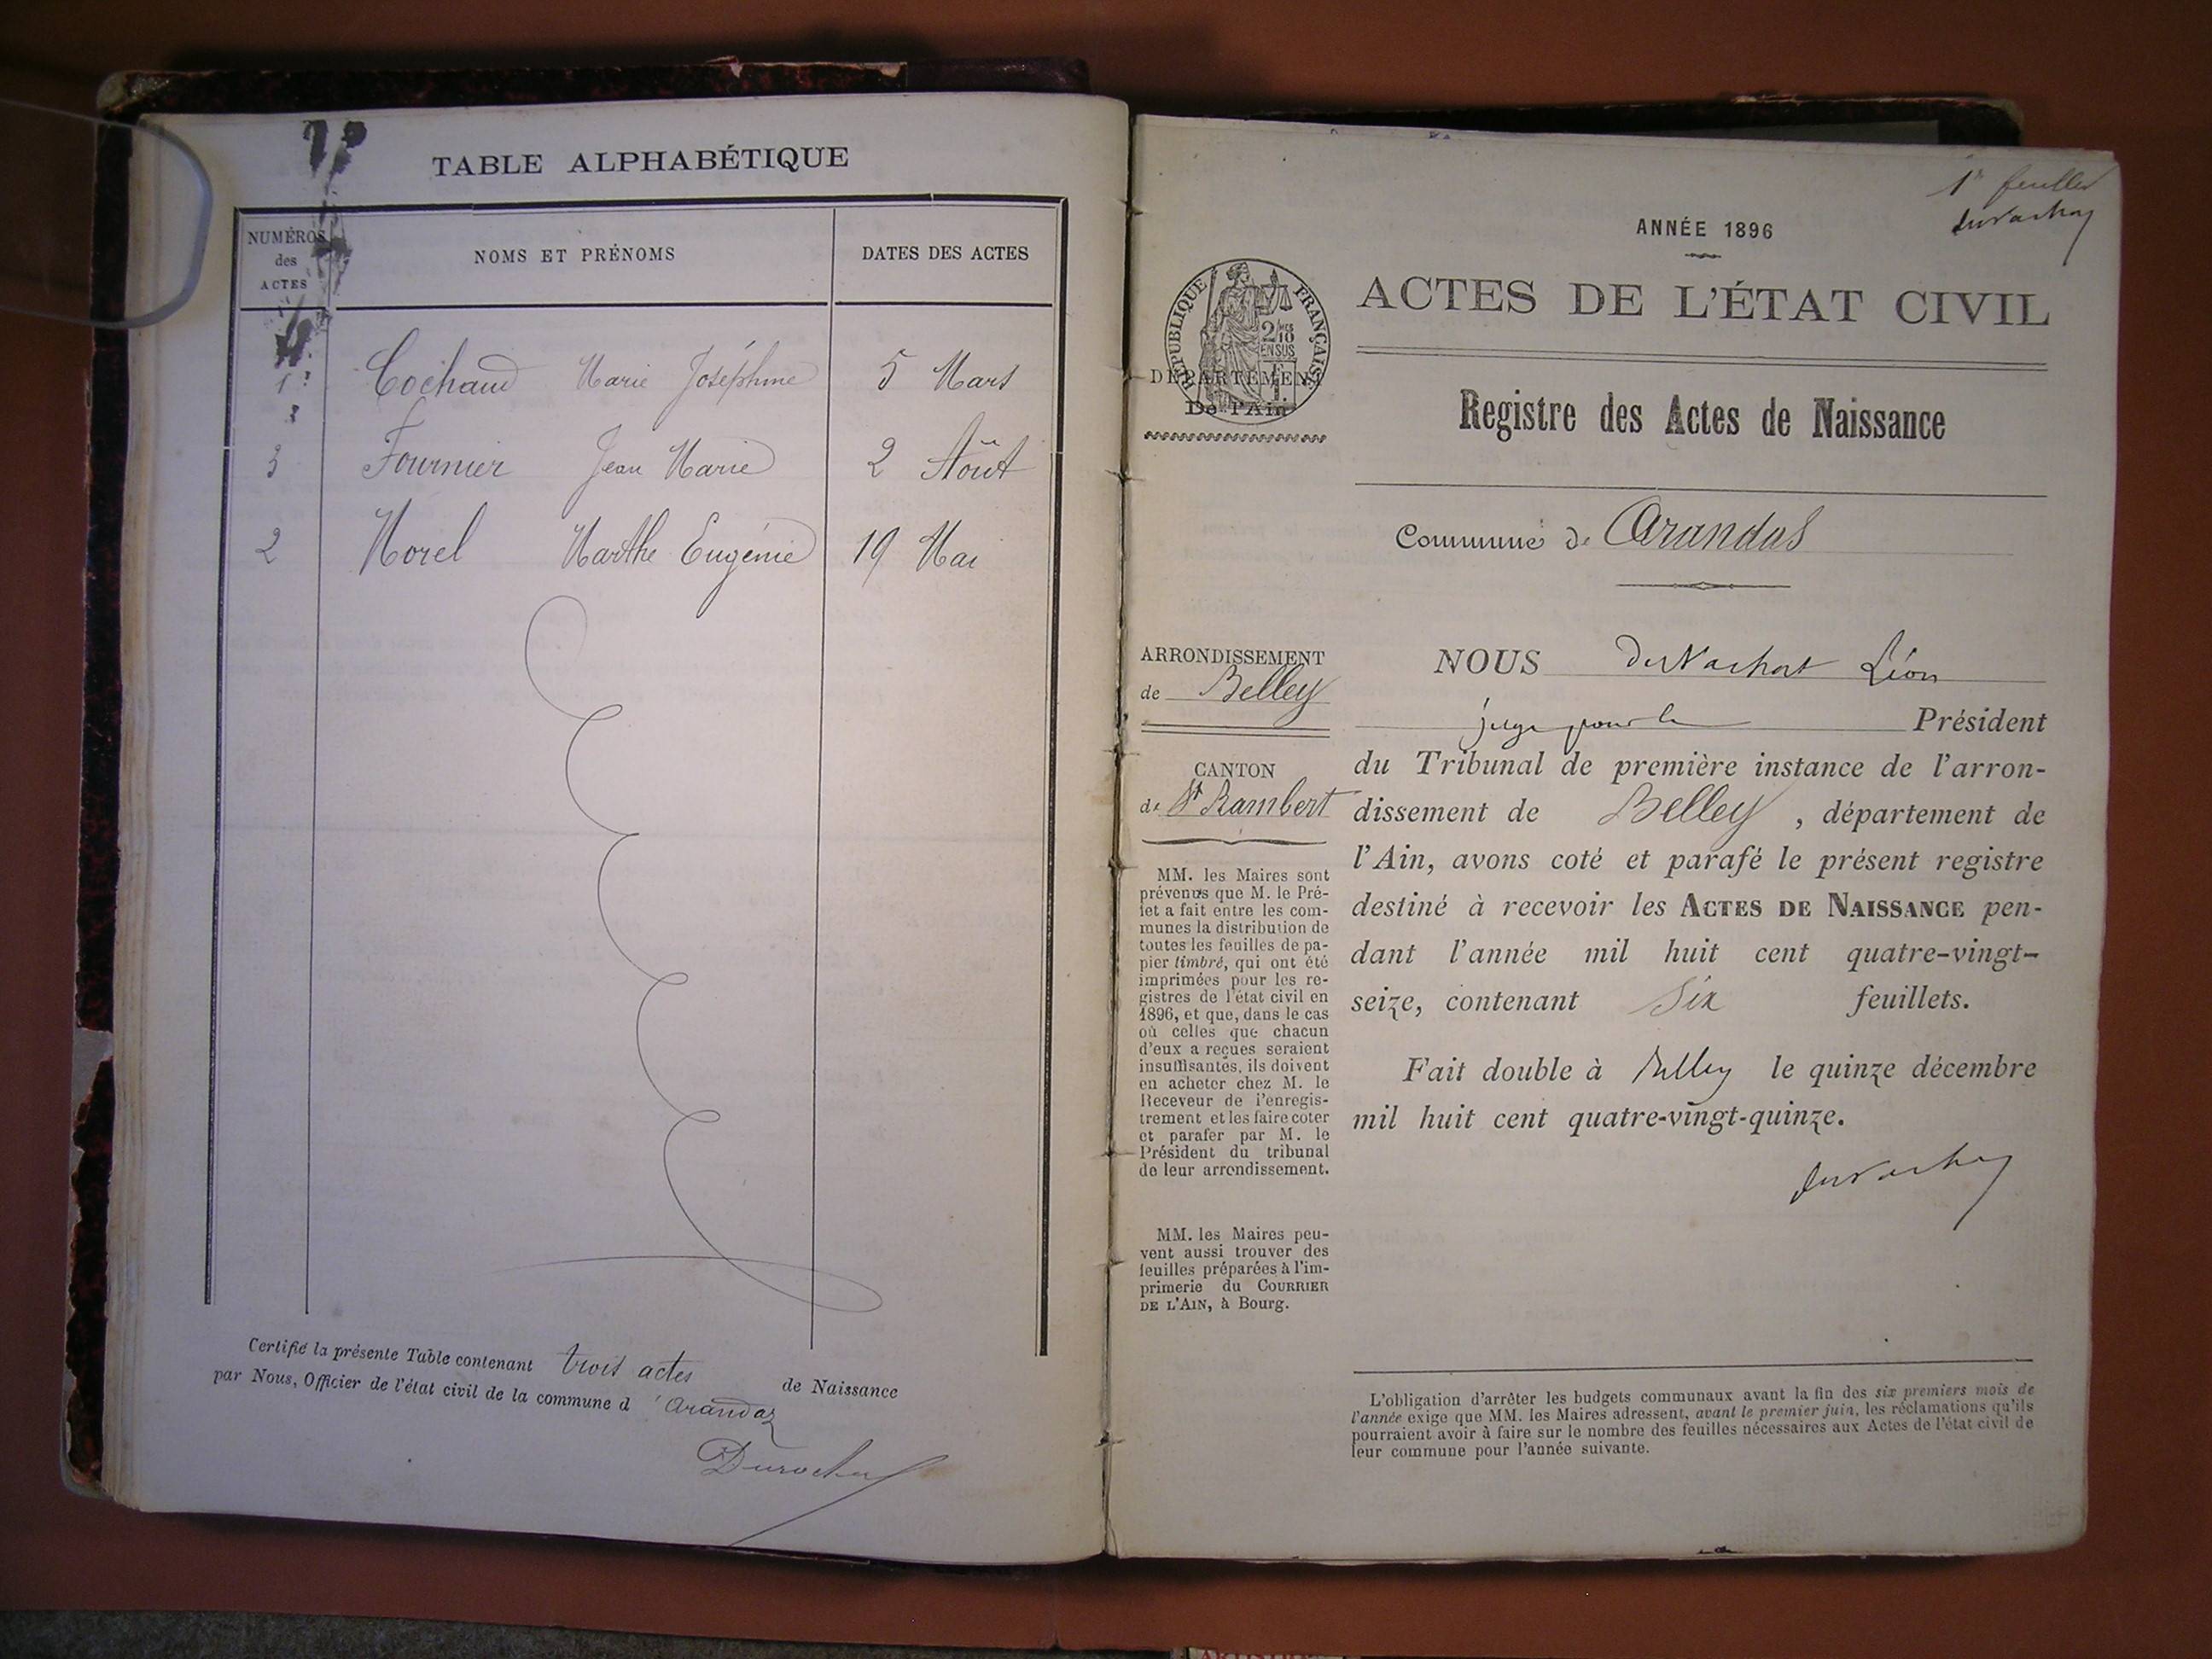 TABLE ALPHABÉTIQUE
NUMÉROS
des
ACTES
NOMS ET PRÉNOMS
DATES DES ACTES
1 Cochaud Marie Joséphine 5 Mars
3 Fournier Jean Marie 2 Août
2 Morel Marthe Eugénie 19 Mai
Certifié la présente Table contenant trois actes de Naissance
par Nous, Officier de l'état civil de la commune d'Arandaz
1er feuillet
ANNÉE 1896
ACTES DE L'ÉTAT CIVIL
RÉPUBLIQUE FRANÇAISE
2/10mes
EN SUS
1F.
DÉPARTEMENT
De l'Ain
Registre des Actes de Naissance
Commune de Arandas
ARRONDISSEMENT
de Belley
CANTON
de St Rambert
MM. les Maires sont
prévenus que M. le Pré-
fet a fait entre les com-
munes la distribution de
toutes les feuilles de pa-
pier timbré, qui ont été
imprimées pour les re-
gistres de l'état civil en
1896, et que, dans le cas
où celles que chacun
d'eux a reçues seraient
insuffisantes, ils doivent
en acheter chez M. le
Receveur de l'enregis-
trement et les faire coter
et parafer par M. le
Président du tribunal
de leur arrondissement.
MM. les Maires peu-
vent aussi trouver des
feuilles préparées à l'im-
primerie du COURRIER
DE L'AIN, à Bourg.
NOUS Léon
juge pour le Président
du Tribunal de première instance de l'arron-
dissement de Belley, département de
l'Ain, avons coté et parafé le présent registre
destiné à recevoir les ACTES DE NAISSANCE pen-
dant l'année mil huit cent quatre-vingt-
seize, contenant Six feuillets.
Fait double à Belley le quinze décembre
mil huit cent quatre-vingt-quinze.
L'obligation d'arrêter les budgets communaux avant la fin des six premiers mois de
l'année exige que MM. les Maires adressent, avant le premier juin, les réclamations qu'ils
pourraient avoir à faire sur le nombre des feuilles nécessaires aux Actes de l'état civil de
leur commune pour l'année suivante.